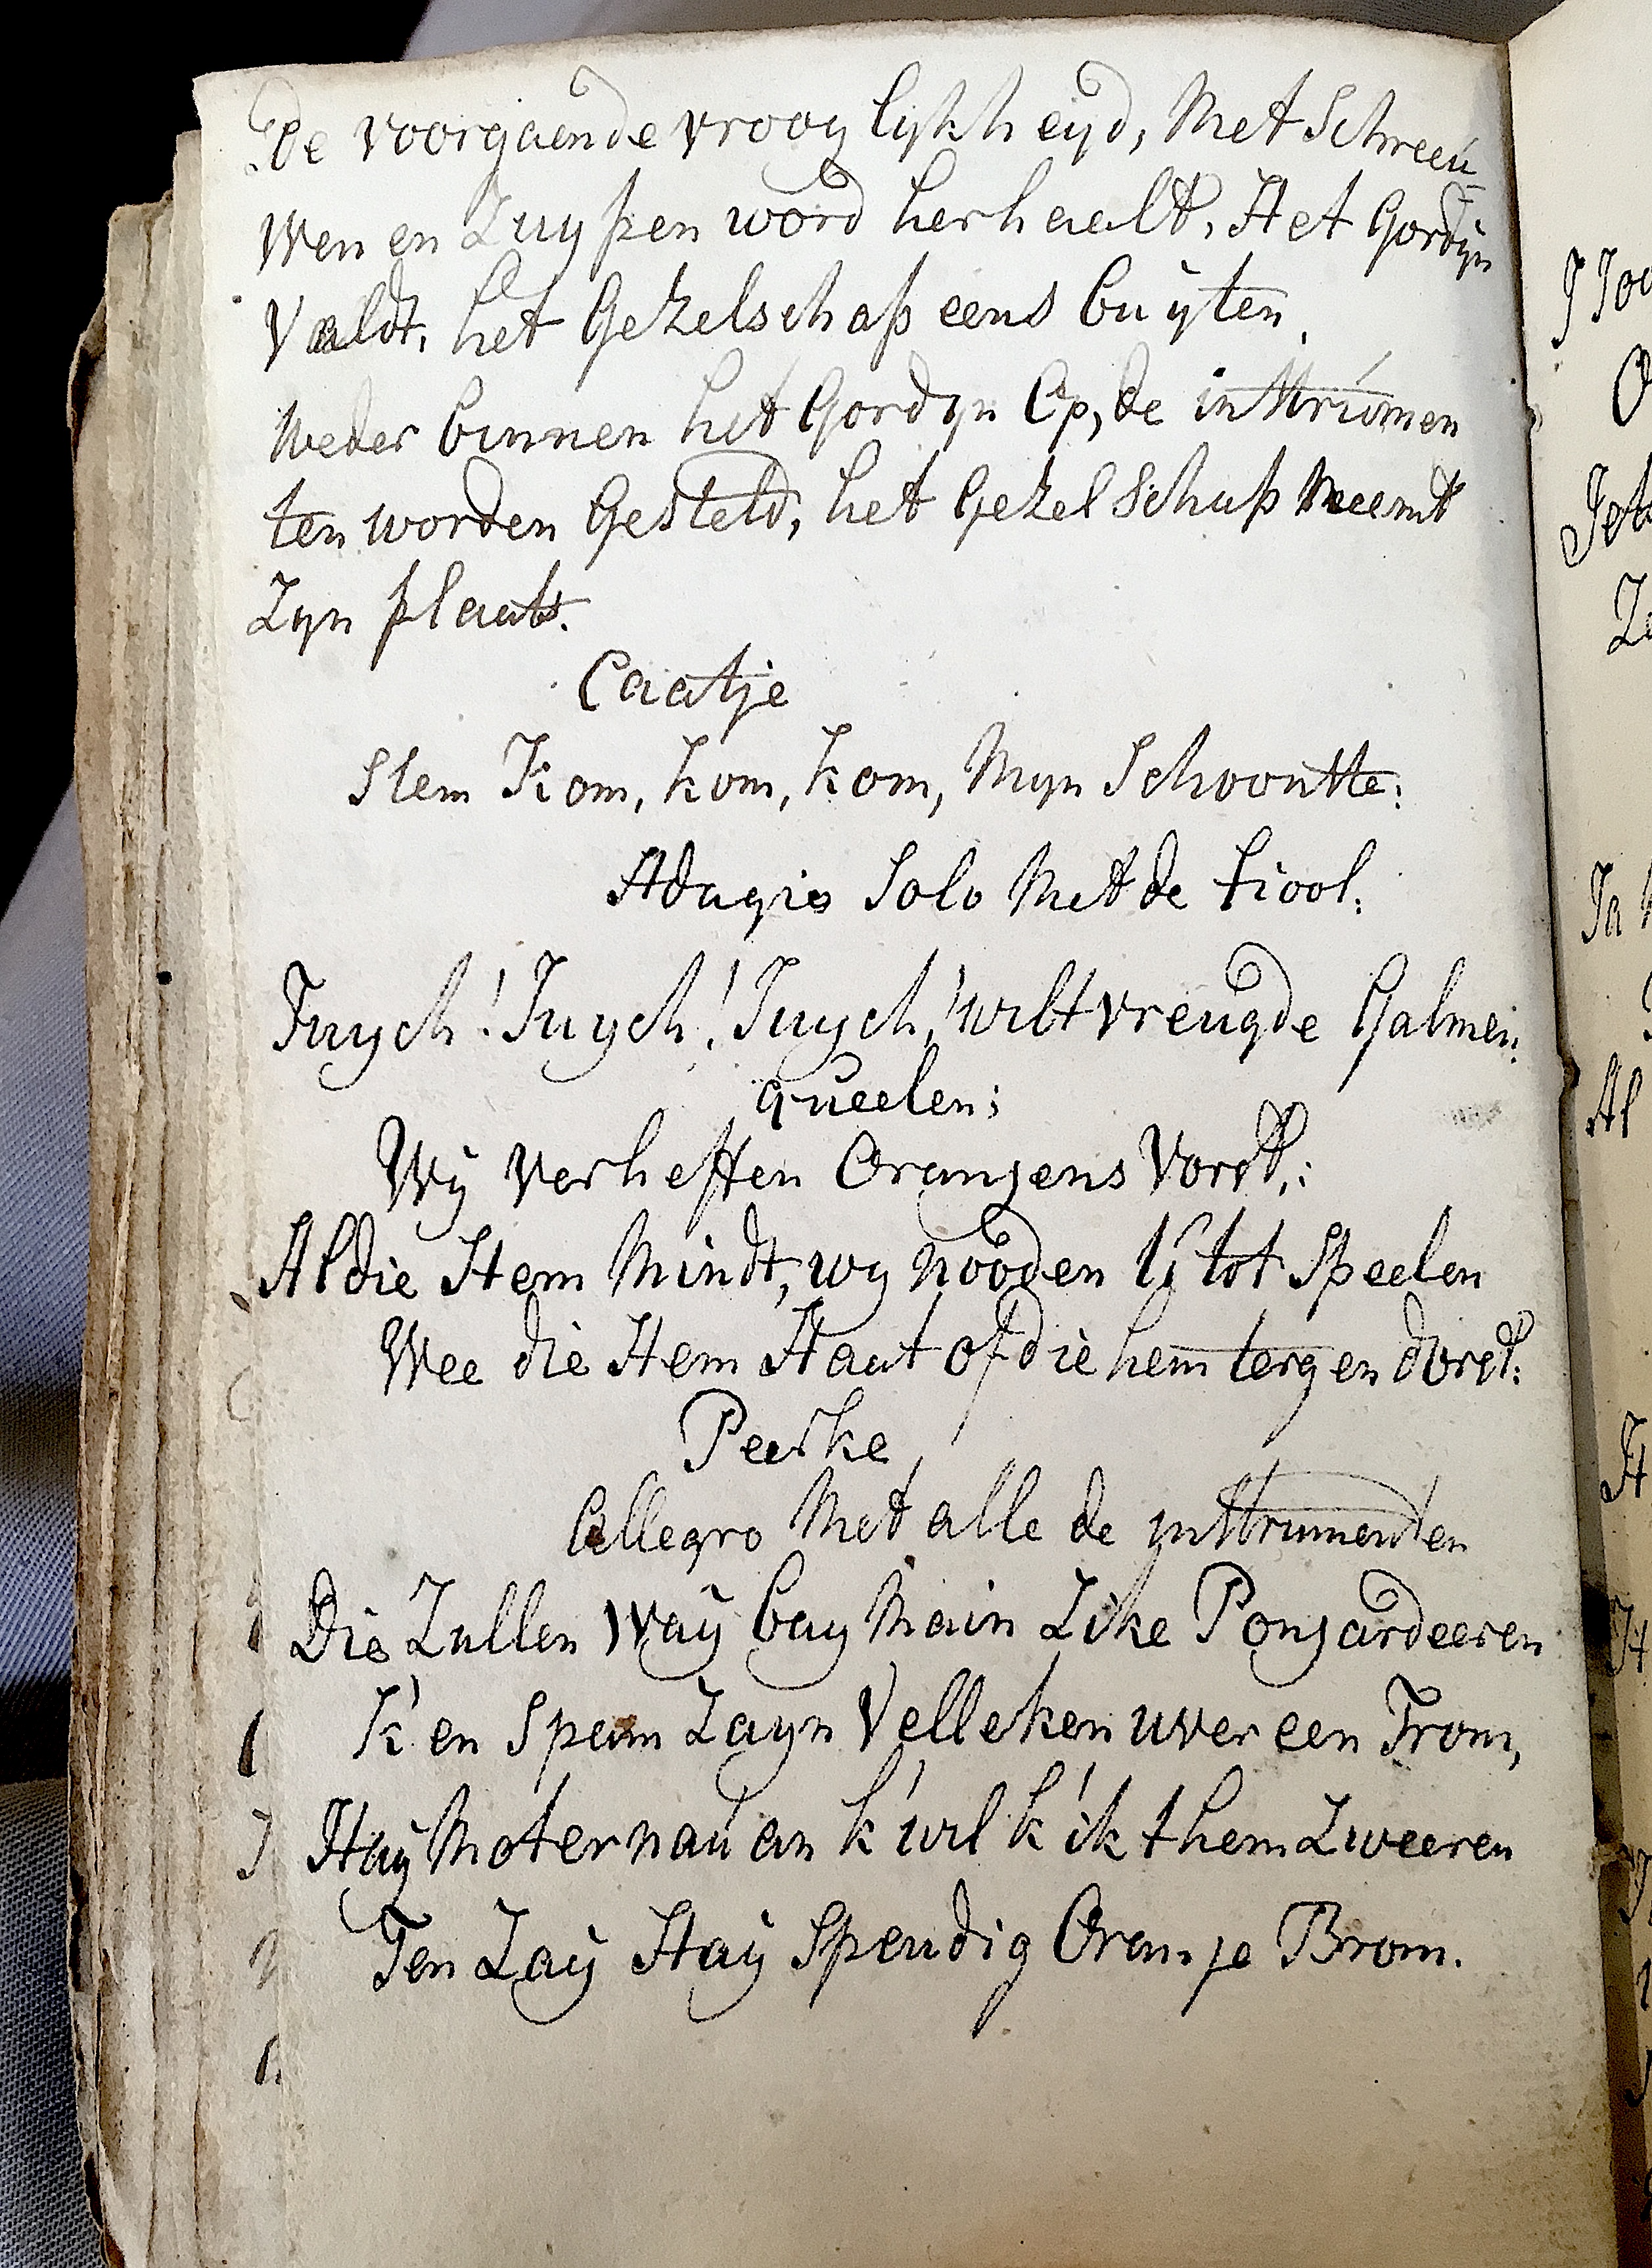 de voorgaende vrooylykheyd, Met Schreeu
wen en Zuypen word herhaelt, Het Gordyn
Valdt, het Gezelschap eens buyten,
Weder binnen het Gordyn Op, de instrúmen
ten worden Gesteld, het Gezelschap Neemt
Zyn plaats.
Caatje
Stem Kom, kom, kom, Myn Schoonste:
Adagio Solo Met de fiool:
Juych! Juych! Juych! wilt vreugde Galmen:
queelen;
Wy verheffen Oranjens Vorst,:
Al die Hem Mindt, wy nooden U tot Speelen
Wee die Hem Haat of die hem tergen dorst:
Peerke
Allegro Met alle de ynstrumenten
Die Zullen Way bay Main Zike Ponjardeeren
K'en Span Zayn Velleken uver een Trom,
Hay Moter nau an k'wil k'ik them Zweeren
Ten Zay Hay Spendig Oranje Brom.